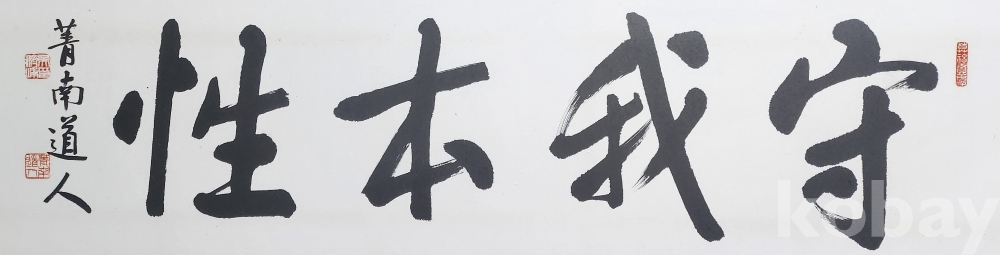 守我本性
菁南道人
kobay